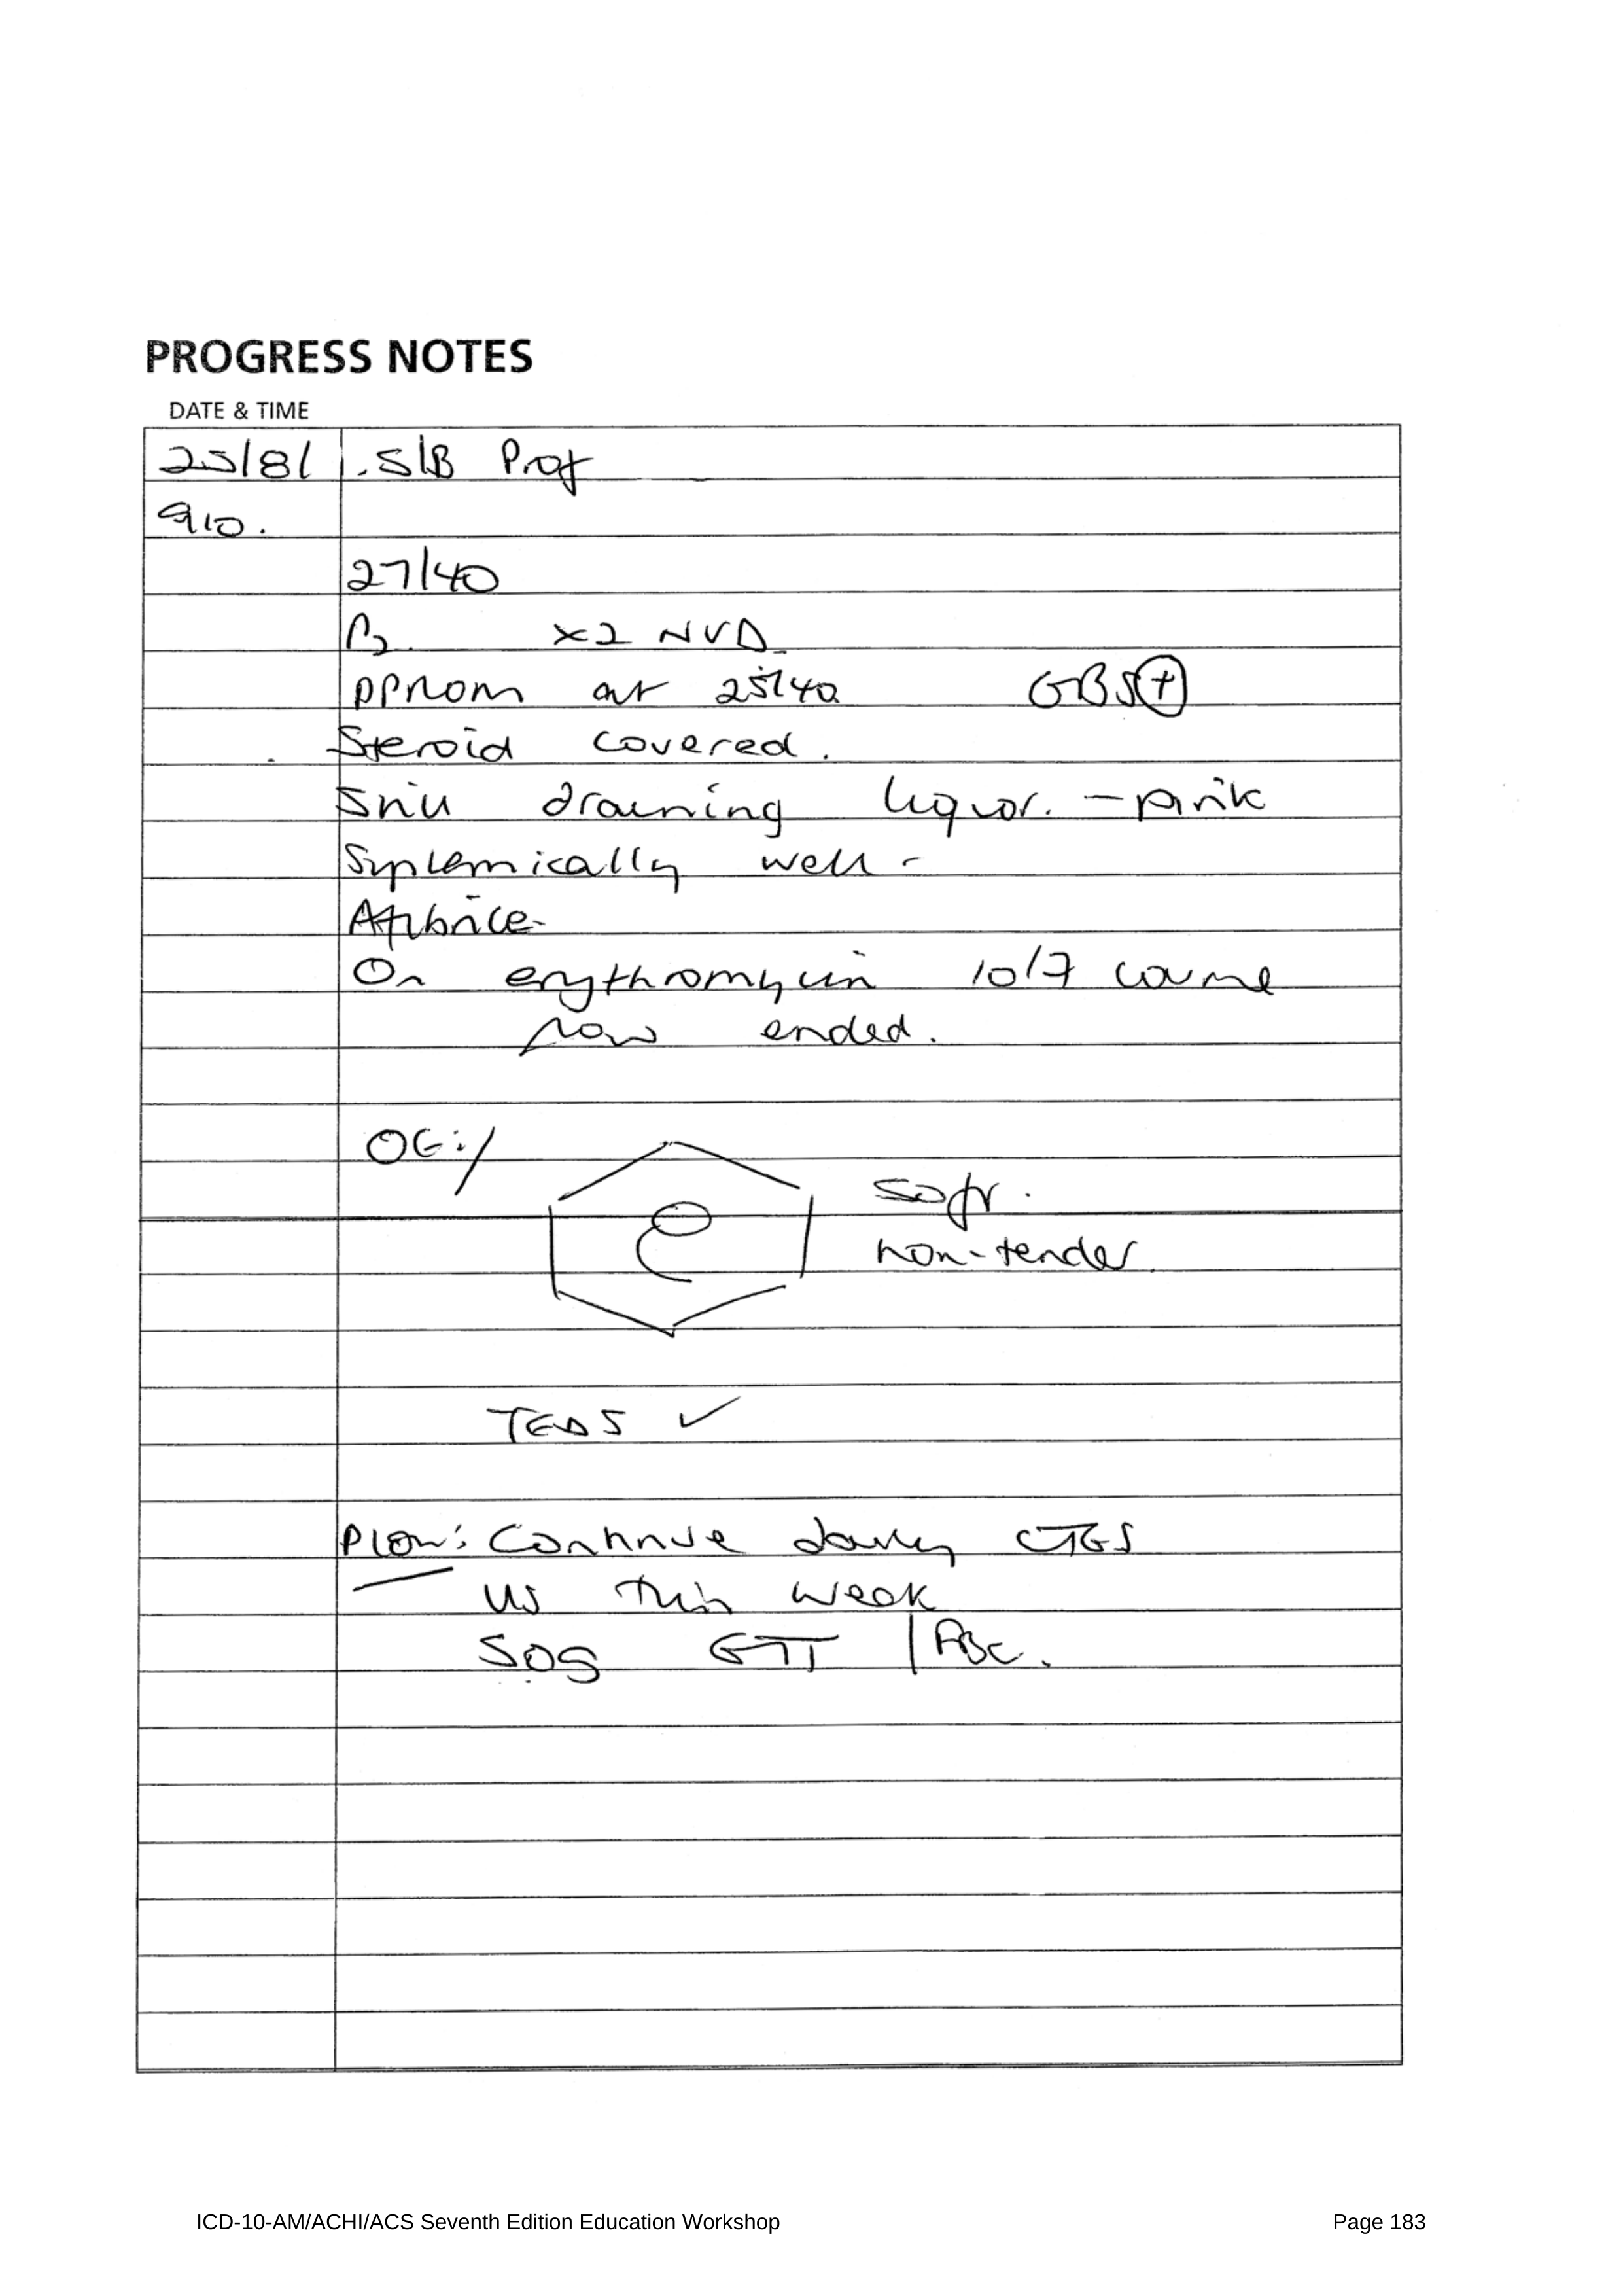 PROGRESS NOTES
DATE & TIME
25/8/ S/B Prof
910.
27/40
P2 x2 NVD
PPROM at 25/40 GBS +
Steroid covered.
Still draining liquor. - pink
Systemically well -
Afebrile -
On erythromycin 10/7 course
now ended.
OE:/
soft.
non-tender
TEDS ✓
Plan: Continue daily CTGS
US this week
GTT / FBC.
ICD-10-AM/ACHI/ACS Seventh Edition Education Workshop Page 183